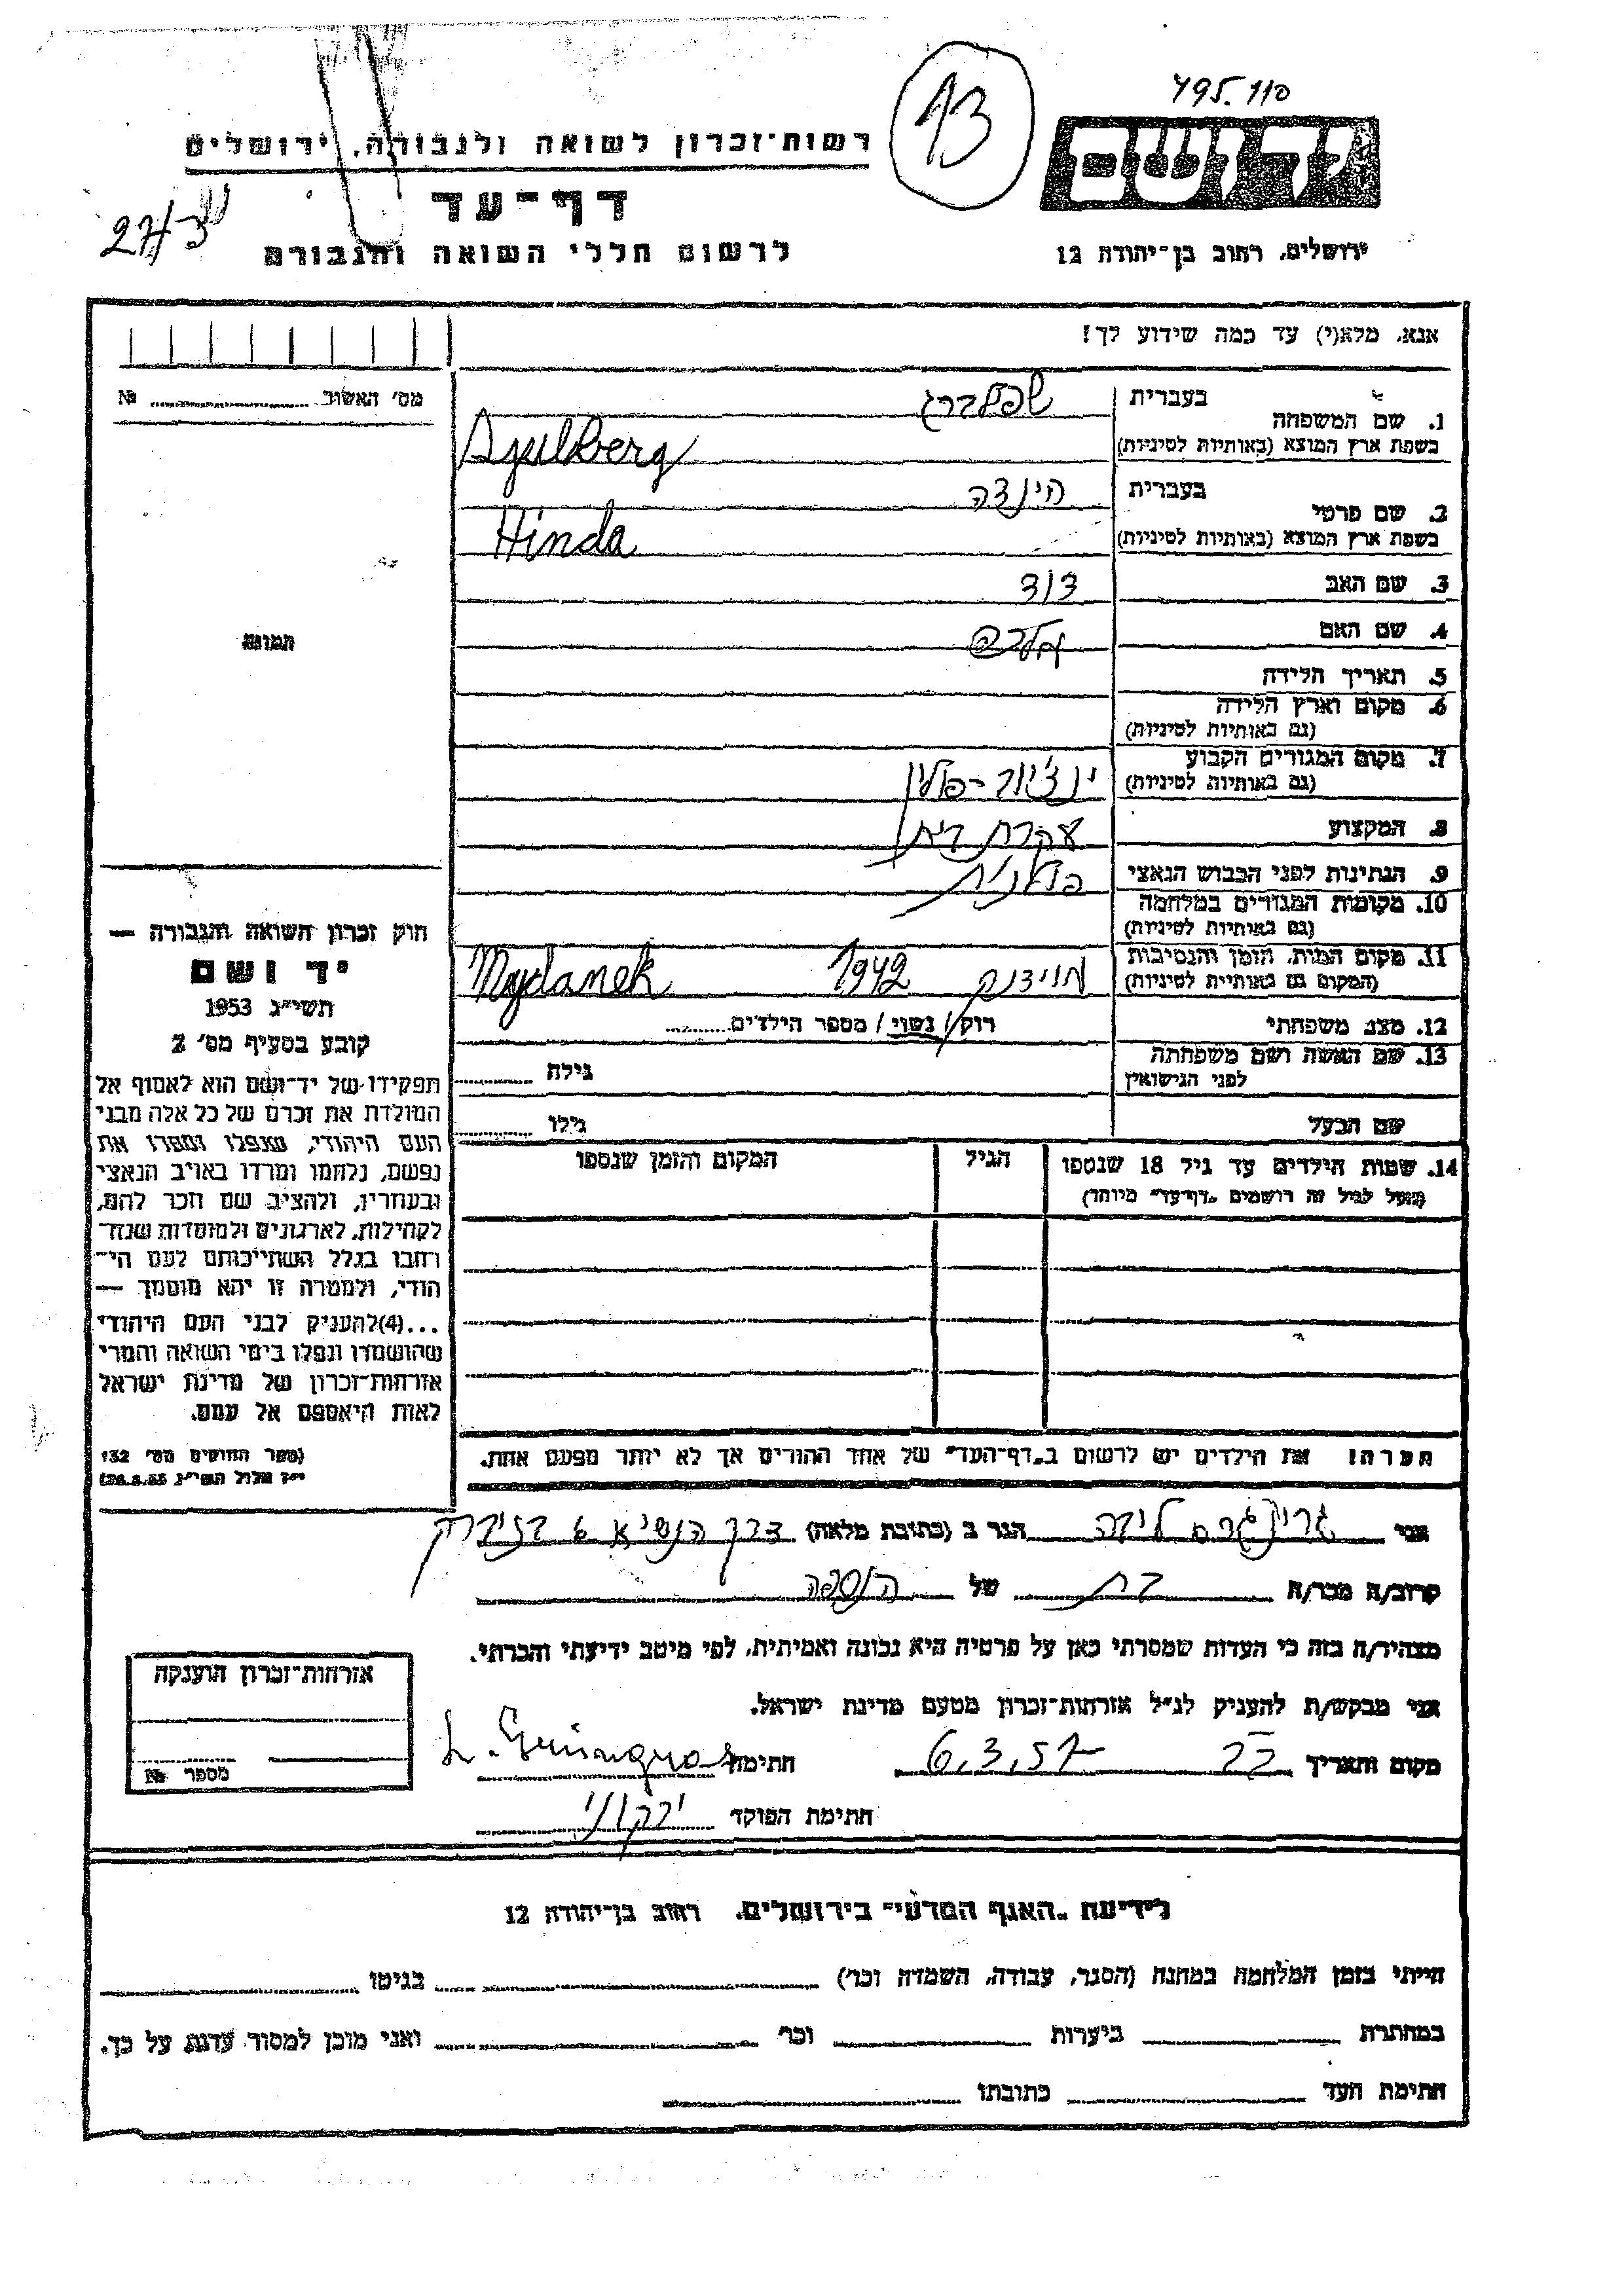 795.110
13
יד ושם
רשות־זכרון לשואה ולגבורה, ירושלים
דף־עד
לרשום חללי השואה והגבורה
ירושלים, רחוב בן־יהודה 12
אנא, מלא(י) עד כמה שידוע לך!
מס' האשור № 
1. שם המשפחה
בעברית
שפלברג
בשפת ארץ המוצא (באותיות לטיניות)
2. שם פרטי
בעברית
הינדה
בשפת ארץ המוצא (באותיות לטיניות) Hinda
3. שם האב דוד
4. שם האם
5. תאריך הלידה
6. מקום וארץ הלידה
(גם באותיות לטיניות)
7. מקום המגורים הקבוע
(גם באותיות לטיניות)
פולין
8. המקצוע עקרת בית
9. הנתינות לפני הכבוש הנאצי פולנית
10. מקומות המגורים במלחמה
(גם באותיות לטיניות)
11. מקום המות, הזמן והנסיבות
(המקום גם באותיות לטיניות)
מיידנק 1942 Majdanek
12. מצב משפחתי רוק/ נשוי / מספר הילדים
13. שם האשה ושם משפחתה
לפני הנישואין
גילה
שם הבעל גילו
14. שמות הילדים עד גיל 18 שנספו הגיל המקום והזמן שנספו
(מעל לגיל זה רושמים "דף־עד" מיוחד)
הערה: את הילדים יש לרשום ב"דף־העד" של אחד ההורים אך לא יותר מפעם אחת.
תמונה
חוק זכרון השואה והגבורה —
יד ושם
תשי"ג 1953
קובע בסעיף מס' 2
תפקידו של יד־ושם הוא לאסוף אל
המולדת את זכרם של כל אלה מבני
העם היהודי, שנפלו ומסרו את
נפשם, נלחמו ומרדו באויב הנאצי
ובעוזריו, ולהציב שם וזכר להם,
לקהילות, לארגונים ולמוסדות שנח־
רבו בגלל השתייכותם לעם הי־
הודי, ולמטרה זו יהא מוסמך —
...(4)להעניק לבני העם היהודי
שהושמדו ונפלו בימי השואה והמרי
אזרחות־זכרון של מדינת ישראל
לאות היאספם אל עמם.
(ספר החוקים מס' 132
י"ז אלול תשי"ג 28.8.53)
אני גרינגרס לידה הגר ב (כתובת מלאה) דרך הנשיא 6
קרוב/ה מכר/ה בת של הנספה
מצהיר/ה בזה כי העדות שמסרתי כאן על פרטיה היא נכונה ואמיתית, לפי מיטב ידיעתי והכרתי.
אני מבקש/ת להעניק לנ"ל אזרחות־זכרון מטעם מדינת ישראל.
מקום ותאריך 6.3.57 חתימה
חתימת הפוקד
אזרחות־זכרון הוענקה
מספר №
לידיעת "האגף המדעי" בירושלים, רחוב בן־יהודה 12
הייתי בזמן המלחמה במחנה (הסגר, עבודה, השמדה וכו') בגיטו
במחתרת ביערות וכו' ואני מוכן למסור עדות על כך.
חתימת העד כתובתו